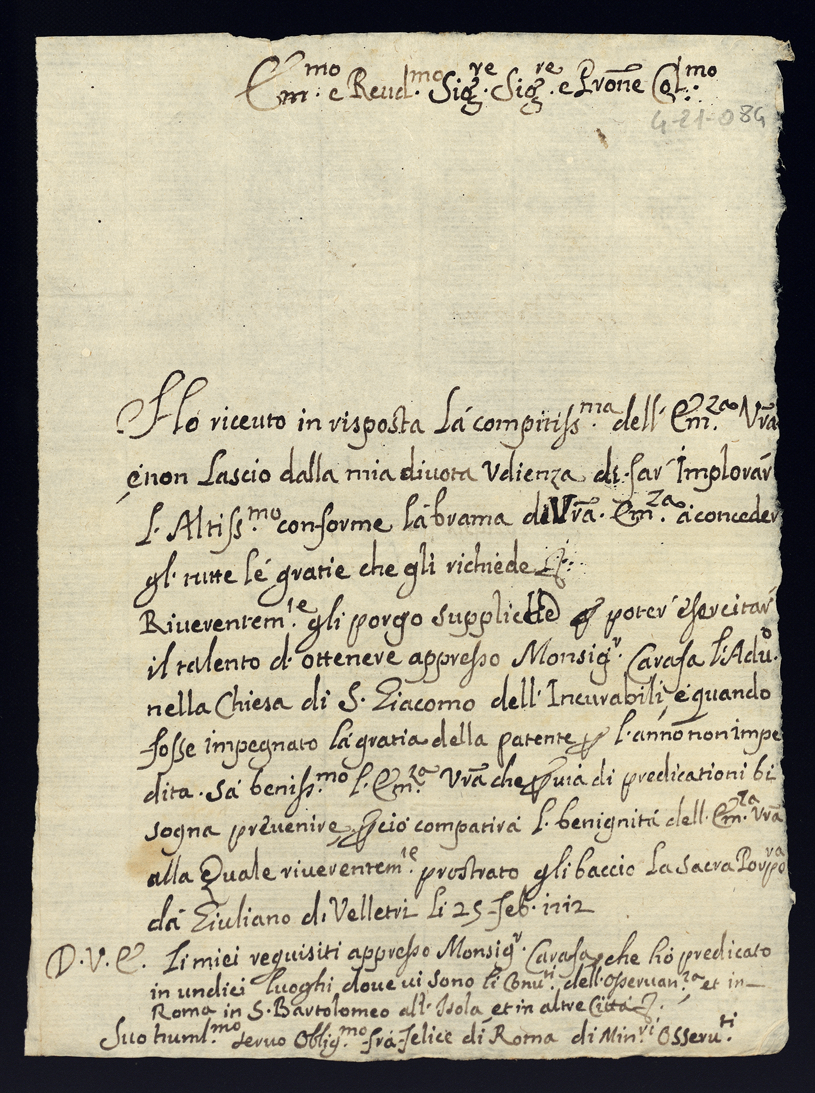 Em.mo e Reud.mo Sig.re Sig.re e Prōne Col.mo
4-21-084
Hó riceuto in risposta lá compitiss.ma dell' Em.za Vrā
é non lascio dalla mia diuota Vdienza di far' Implorár
l' Altiss.mo conforme lá brama di Vrā. Em.za á conceder
gl' tutte lé gratie che gli richiede
Riuerentem.te gli porgo poter' éssercitar
il talento d' ottenere appresso Monsig.r Carafa l' Adu.o
nella Chiesa di S. Giacomo dell' Incurabili, é quando
fosse impegnato lá gratia della patente l' anno non impe
dita. sá beniss.mo l' Em.za Vrā che uia di predicationi bi
sogna préuenire, ciò compatirá l' benignitá dell' Em.za Vrā
alla Quale riuerentem.te prostrato gli baccio la sacra Porpora
dá Giuliano di Velletri li 25 feb. 1712
D. V. E. li miei requisiti appresso Monsig.r Carafa, che hó predicato
in undici luoghi doue ui sono li Conu.ti dell' Osseruan.za et in
Roma in S. Bartolomeo all' Isola, et in altre Cittá
Suo huml.mo seruo Oblig.mo frá Felice di Roma di Min.ri Osseru.ti